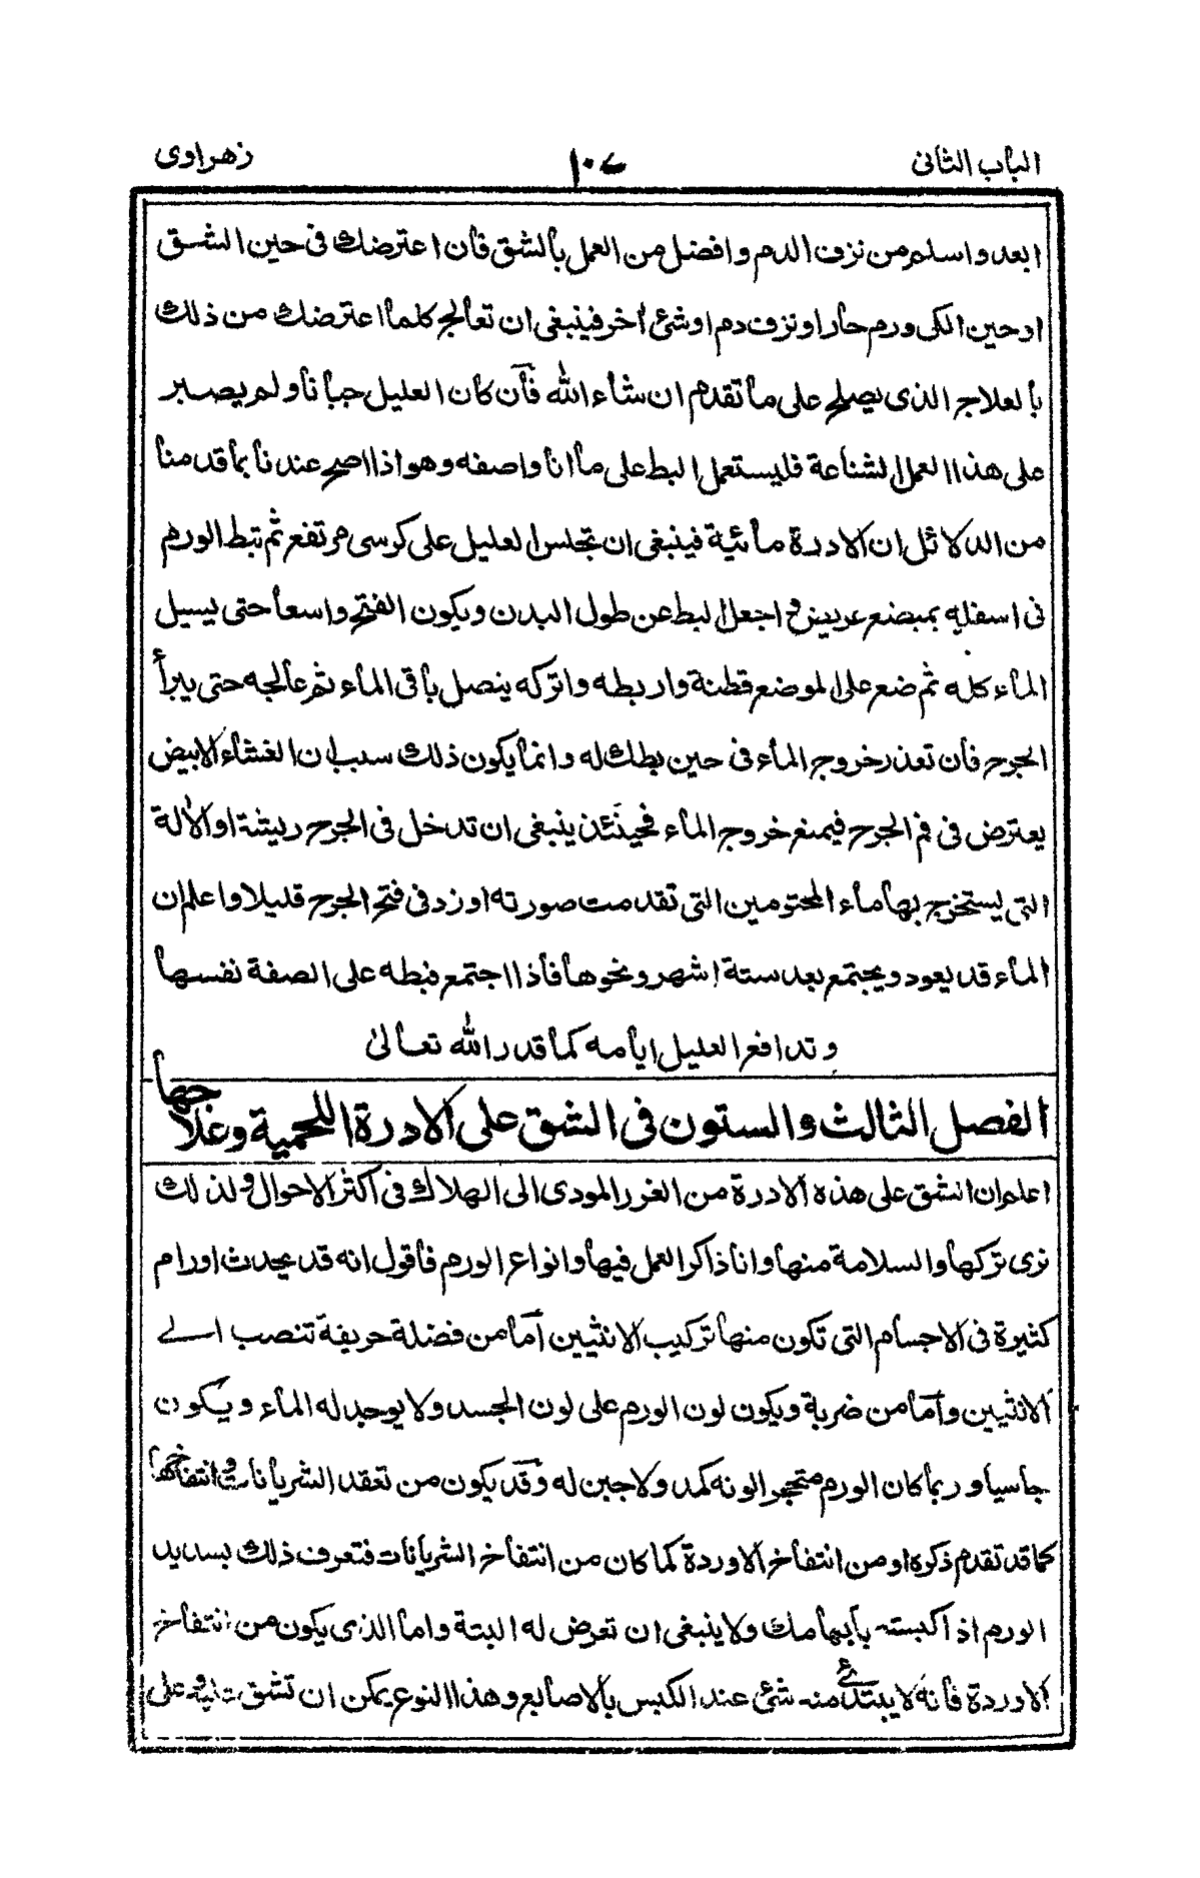 الباب الثانی ١٠٤ زهراوی
ابعد واسلم من نزف الدم وافضل من العمل بالشق فان اعترضك فی حین الشق
او حین الکی ورم حار او نزف دم او شئ أخر فینبغی ان تعالج کلما اعترضك من ذلك
بالعلاج الذی یصلح علی ما تقدم ان شاء الله فان کان العلیل جبانا ولم یصبر
علی هذا العمل الشناعة فلیستعمل البط علی ما انا واصفه وهو اذا صح عندنا بما قدمنا
من الدلائل ان الادرة مائیة فینبغی ان تجلس العلیل علی کرسی مرتفع ثم تبط الورم
فی اسفله بمبضع عریض و اجعل البط عن طول البدن ویکون الفتح واسعا حتی یسیل
الماء کله ثم ضع علی الموضع قطنة واربطه واترکه ینصل باقی الماء ثم عالجه حتی یبرأ
الجرح فان تعذر خروج الماء فی حین بطك له وانما یکون ذلك سبب ان الغشاء الابیض
یعترض فی فم الجرح فیمنع خروج الماء فحینئذ ینبغی ان تدخل فی الجرح ریشة او الالة
التی یستخرج بها ماء المحتومین التی تقدمت صورته او زد فی فتح الجرح قلیلا واعلم ان
الماء قد یعود ویجتمع بعد ستة اشهر ونحوها فاذا اجتمع فبطه علی الصفة نفسها
وتدافع العلیل ایامه کما قدر الله تعالیٰ
الفصل الثالث والستون فی الشق علی الادرة اللحمیة وعلاجها
اعلم ان الشق علی هذه الادرة من الغرر المودی الی الهلاك فی اکثر الاحوال ولذلك
نری ترکها والسلامة منها وانا ذاکر العمل فیها وانواع الورم فاقول انه قد یحدث اورام
کثیرة فی الاجسام التی تکون منها ترکیب الانثیین اما من فضلة حریفة تنصب الے
الانثیین واما من ضربة ویکون لون الورم علی لون الجسد ولا یوجد له الماء ویکون
جاسیا وربما کان الورم متحجرا لونه کمد ولا جبن له وقد یکون من تعقد الشریانات وانتفاخها
کما قد تقدم ذکره او من انتفاخ الاوردة کما کان من انتفاخ الشریانات فتعرف ذلك
الورم اذا کبسته بابهامك ولا ینبغی ان تعرض له البتة واما الذی یکون من انتفاخ
الاوردة فانه لا یبتدئ منه شئ عند الکبس بالاصابع وهذا النوع یمکن ان تشق علیه وعلی